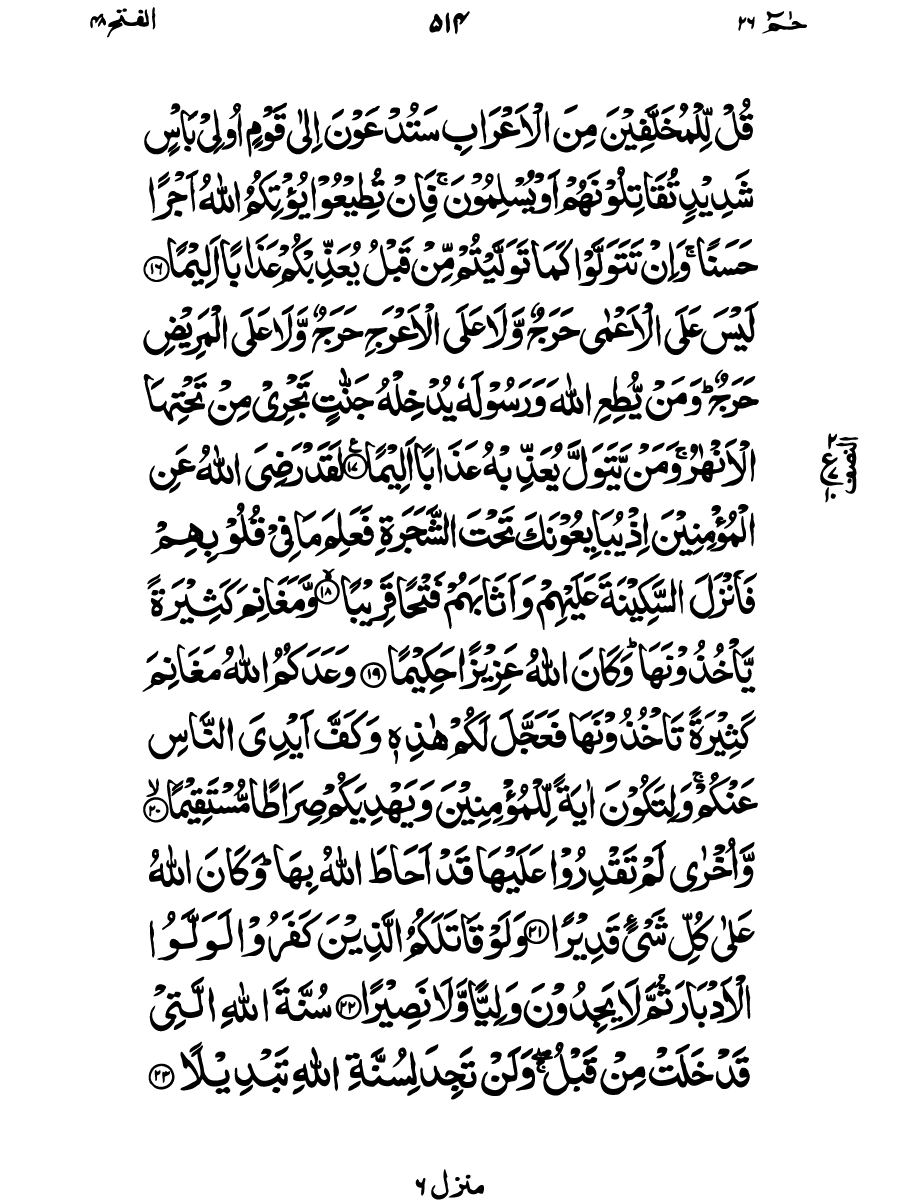 حٰمٓ ٢٦ ٥١٤ الفتح ٤٨
قُلْ لِّلْمُخَلَّفِيْنَ مِنَ الْاَعْرَابِ سَتُدْعَوْنَ اِلٰى قَوْمٍ اُولِيْ بَاْسٍ
شَدِيْدٍ تُقَاتِلُوْنَهُمْ اَوْ يُسْلِمُوْنَ ۚ فَاِنْ تُطِيْعُوْا يُؤْتِكُمُ اللّٰهُ اَجْرًا
حَسَنًا ۚ وَاِنْ تَتَوَلَّوْا كَمَا تَوَلَّيْتُمْ مِّنْ قَبْلُ يُعَذِّبْكُمْ عَذَابًا اَلِيْمًا ۝١٦
لَيْسَ عَلَى الْاَعْمٰى حَرَجٌ وَّلَا عَلَى الْاَعْرَجِ حَرَجٌ وَّلَا عَلَى الْمَرِيْضِ
حَرَجٌ ؕ وَمَنْ يُّطِعِ اللّٰهَ وَرَسُوْلَهٗ يُدْخِلْهُ جَنّٰتٍ تَجْرِيْ مِنْ تَحْتِهَا
الْاَنْهٰرُ ۚ وَمَنْ يَّتَوَلَّ يُعَذِّبْهُ عَذَابًا اَلِيْمًا ۝١٧ لَقَدْ رَضِيَ اللّٰهُ عَنِ
الْمُؤْمِنِيْنَ اِذْ يُبَايِعُوْنَكَ تَحْتَ الشَّجَرَةِ فَعَلِمَ مَا فِيْ قُلُوْبِهِمْ
فَاَنْزَلَ السَّكِيْنَةَ عَلَيْهِمْ وَاَثَابَهُمْ فَتْحًا قَرِيْبًا ۝١٨ وَّمَغَانِمَ كَثِيْرَةً
يَّاْخُذُوْنَهَا ؕ وَكَانَ اللّٰهُ عَزِيْزًا حَكِيْمًا ۝١٩ وَعَدَكُمُ اللّٰهُ مَغَانِمَ
كَثِيْرَةً تَاْخُذُوْنَهَا فَعَجَّلَ لَكُمْ هٰذِهٖ وَكَفَّ اَيْدِيَ النَّاسِ
عَنْكُمْ ۚ وَلِتَكُوْنَ اٰيَةً لِّلْمُؤْمِنِيْنَ وَيَهْدِيَكُمْ صِرَاطًا مُّسْتَقِيْمًا ۙ۝٢٠
وَّاُخْرٰى لَمْ تَقْدِرُوْا عَلَيْهَا قَدْ اَحَاطَ اللّٰهُ بِهَا ؕ وَكَانَ اللّٰهُ
عَلٰى كُلِّ شَيْءٍ قَدِيْرًا ۝٢١ وَلَوْ قَاتَلَكُمُ الَّذِيْنَ كَفَرُوْا لَوَلَّوُا
الْاَدْبَارَ ثُمَّ لَا يَجِدُوْنَ وَلِيًّا وَّلَا نَصِيْرًا ۝٢٢ سُنَّةَ اللّٰهِ الَّتِيْ
قَدْ خَلَتْ مِنْ قَبْلُ ۖۚ وَلَنْ تَجِدَ لِسُنَّةِ اللّٰهِ تَبْدِيْلًا ۝٢٣
النصف
٢ ع ٧ ١٠
منزل ٦